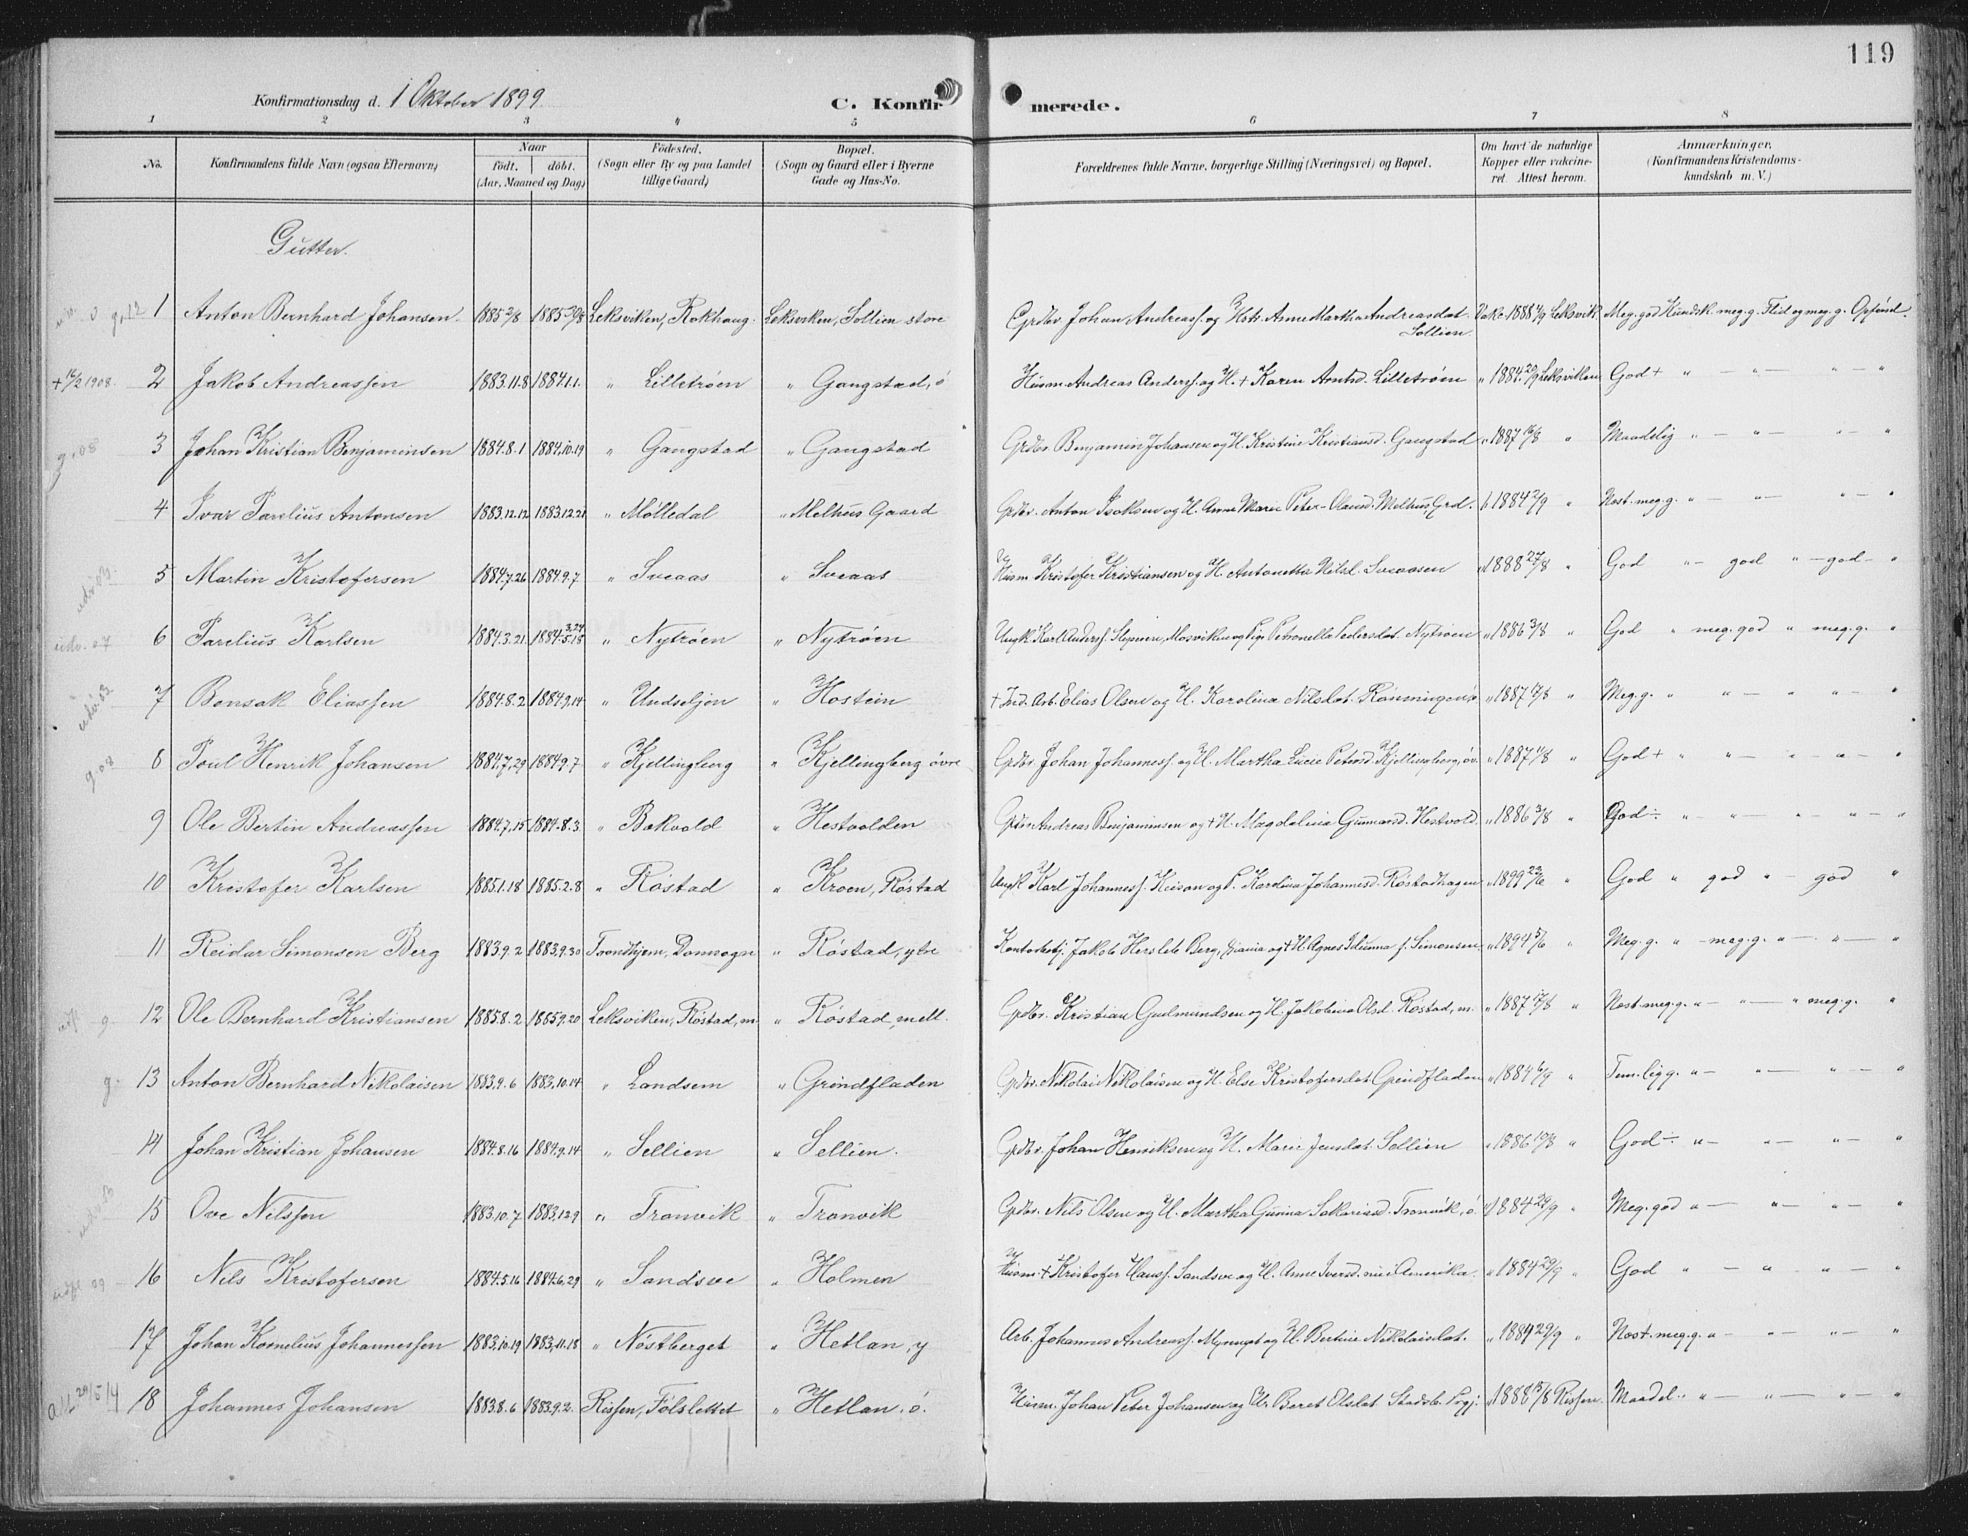 119
Konfirmationsdag d. 1 Oktober 1899 C. Konfirmerede.
1 2 3 4 5 6 7 8
No. Konfirmandens fulde Navn (ogsaa Efternavn) Naar födt. döbt. (Aar, Maaned og Dag) Födested. (Sogn eller By og paa Landet tillige Gaard) Bopæl. (Sogn og Gaard eller i Byerne Gade og Hus-No. Forældrenes fulde Navne, borgerlige Stilling (Næringsvei) og Bopæl. Om havt de naturlige Kopper eller vaccineret. Attest herom. Anmærkninger. (Konfirmandens Kristendomskundskab m. V.)
Gutter.
1 Anton Bernhard Johansen 1885 2/8 1885 30/8 Leksviken, Rokhaug Leksviken, Sollien store Grdbr Johan Andreass. og Hstr. Anne Martha Andreasdat. Sollien Vakc. 1888 4/9 Leksvik. Meg. god Kundsk. meg. g. Flid og meg. g. Opførsl.
+ 16/2 1908. 2 Jakob Andreassen 1883.11.8 1884.1.1. " Lilletrøen " Gangstad, ø Husm. Andreas Anderss. og H. + Karen Arntsd. Lilletrøen " 1884 20/9 Leksviken God + " — " — " — "
g. 08 3 Johan Kristian Benjaminsen 1884.8.1 1884.10.19 " Gangstad " Gangstad Grdbr. Benjamin Johansen og H. Kristine Kristiansd. Gangstad " 1887 16/8 " Maadelig " — " — " — "
4 Ivar Parelius Antonsen 1883.12.12 1883.12.21 " Mølledal " Melhus Gaard Grdbr. Anton Isaksen og H. Anne Marie Peter-Olausd. Melhus Grd. 1884 2/9 " Nost. meg. g. " — " — " — "
udv. 03. 5 Martin Kristofersen 1884.7.26 1884.9.7 " Sveaas " Sveaas Husm Kristofer Kristiansen og H. Antonetta Nilsd. Sveaasen " 1888 27/8 " God " — god " — god — "
udv. 07 6 Parelius Karlsen 1884.3.21 1884.5.18 3.24 " Nytrøen " Nytrøen Ungk. Karl Anderss. Mosviken og Pige Petronella Pedersdat. Nytrøen " 1886 3/8 " God " meg. god " meg. g. "
udv. 03 7 Bensak Eliassen 1884.8.2 1884.9.14 " Undseljen " Hostein + Ind. Arb. Elias Olsen og H. Karolina Nilsdat. " 1887 17/8 " Meg. g. " " — " " — "
g. 08 8 Poul Henrik Johansen 1884.7.29 1884.9.7 " Kjellingberg " Kjellingberg øvre Grdbr. Johan Johanness. og H. Martha Lucie Petersd. Kjellingberg, øv. " 1887 17/8 " God + " " — " — " — "
9 Ole Bertin Andreassen 1884.7.15 1884.8.3 " Bakvold " Hestvolden Grdbr Andreas Benjaminsen og + H. Magdalena Gunnarsd. Hestvold. " 1886 3/8 " God ÷ " — " — " — " — "
10 Kristofer Karlsen 1885.1.18 1885.2.8 " Røstad " Kroen, Røstad Ungk Karl Johanness. og P. Karolina Johannesd. Røstadhagen " 1899 23/6 " God " god " — god "
11 Reidar Simonsen Berg 1883.9.2 1883.9.30 Trondhjem, Domsogn " Røstad, ytre Kontorbetj. Jakob Hersleb Berg, og + H. Agnes f. Simonsen " 1894 5/6 " Meg. g. " — meg. g. " — " — "
g 12 Ole Bernhard Kristiansen 1885.8.2 1885.9.20 Leksviken, Røstad, m. " Røstad, mell. Grdbr. Kristian Gudmundsen og H. Jakobina Olsd. Røstad, m. " 1887 17/8 " Nost. meg. g. " — " — " meg. g. "
g. 13 Anton Bernhard Nikolaisen 1883.9.6 1883.10.14 " Landsem " Grindfladen Grdbr. Nikolai Nikolaisen og H. Else Kristofersdat. Grindfladen " 1884 6/9 " Tem. lig g. " — " — " — "
14 Johan Kristian Johansen 1884.8.16 1884.9.14 " Sellien " Sellien. Grdbr. Johan Henriksen og H. Marie Jensdat. Sollien " 1886 19/8 " God ÷ " — " — " — "
15 Ove Nilssen 1883.10.7 1883.12.9 " Tranvik " Tranvik Grdbr. Nils Olsen og H. Martha Gunna Sakariasd. Tranvik, ø " 1884 29/9 " Meg. god " — " — " — "
16 Nils Kristofersen 1884.5.16 1884.6.29 " Sandsve " Holmen Husm. + Kristofer Hanss. Sandsve og H. Anne Iversd. nu i Amerika. " 1884 29/9 " God " — " — " — "
17 Johan Kornelius Johannessen 1883.10.19 1883.11.18 " Nøstberget " Hetlan, y Arb. Johannes Andreass. og H. Bertine Nikolaisdat. " 1884 29/9 " Nost. meg. g. " — " — " — "
att. 29/5 14 18 Johannes Johansen 1883.8.6 1883.9.2. Rissen, Følslettet " Hetlan. ø. Husm. Johan Peter Johansen og Beret Olsdat. " 1888 15/8 Rissen Maadel. " — " — " — "